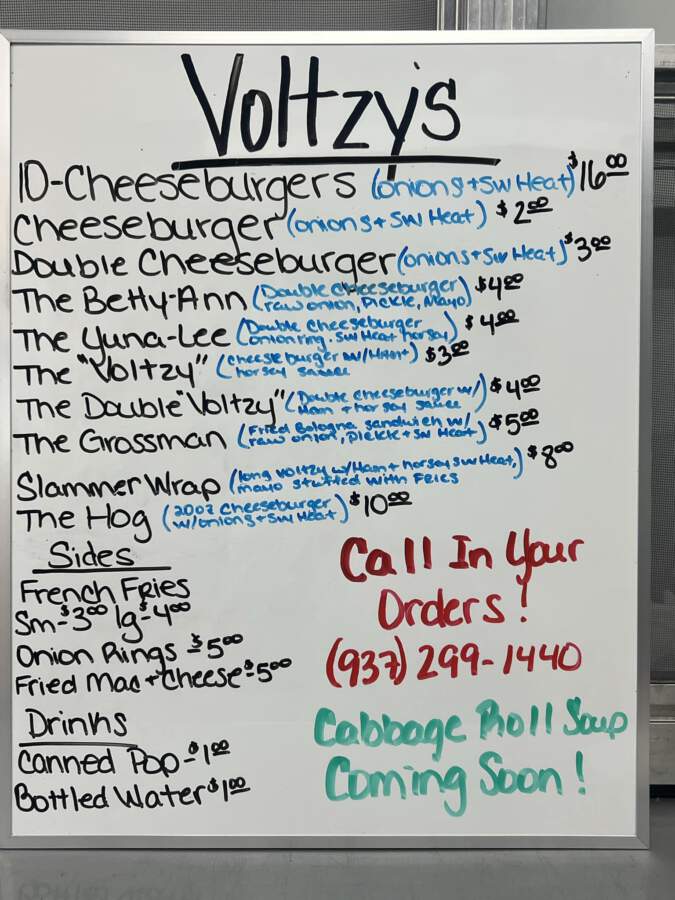 Voltzy's
10-Cheeseburgers (onions + SW Heat) $16.00
Cheeseburger (onions + SW Heat) $2.00
Double Cheeseburger (onions + SW Heat) $3.00
The Betty-Ann (Double Cheeseburger $4.00
raw onion, Pickle, Mayo)
The Yuna-Lee (Double cheeseburger $4.00
onion ring, SW Heat horsey)
The "Voltzy" (cheeseburger w/Ham + $3.00
horsey sauce)
The Double "Voltzy" (Double cheeseburger w/ $4.00
Ham + horsey sauce)
The Grossman (Fried Bologna Sandwich w/ $5.00
raw onion, pickle + SW Heat)
Slammer Wrap (long voltzy w/Ham + horsey SW Heat, $8.00
mayo stuffed with Fries)
The Hog (20oz Cheeseburger $10.00
w/onions + SW Heat)
Sides
French Fries
Sm-$3.00 lg-$4.00
Onion Rings -$5.00
Fried Mac + Cheese -$5.00
Drinks
Canned Pop -$1.00
Bottled Water $1.00
Call In Your
Orders!
(937) 299-1440
Cabbage Roll Soup
Coming Soon!